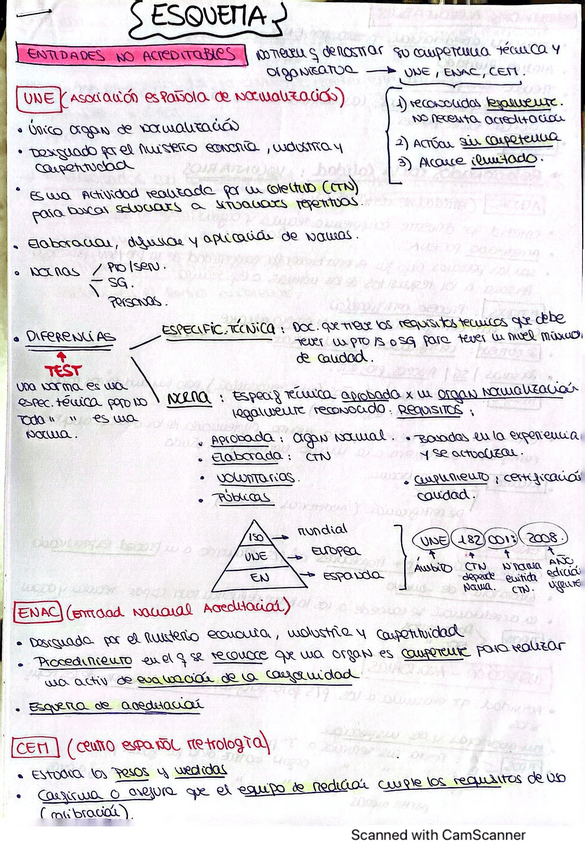 ESQUEMA
ENTIDADES NO ACREDITABLES no tienen q demostrar su competencia técnica y
organizativa → UNE, ENAC, CEM.
UNE (Asociación española de Normalización)
1) reconocidas legalmente.
no necesita acreditación
2) Actúan sin competencia
3) Alcance ilimitado.
• Único organ de normalización
• Designado por el Ministerio economía, industria y
competitividad
• Es una Actividad realizada por un colectivo (CTN)
para buscar soluciones a situaciones repetitivas.
• Elaboración, difusión y aplicación de Normas.
• Normas PTO/SERV.
SG.
Personas.
• DIFERENCIAS
TEST
una norma es una
espec. técnica pero no
toda " " es una
norma.
ESPECIFIC. TÉCNICA: Doc. que tiene los requisitos técnicos que debe
tener un pto /s o SG para tener un nivel mínimo
de calidad.
Norma: especif técnica aprobada x un organ Normalización
legalmente reconocido. REQUISITOS:
• Aprobada: organ normal.
• Elaborada: CTN
• Voluntarias.
• Públicas
• Basadas en la experiencia
y se actualizan.
• Cumplimiento: certificación
calidad.
ISO → mundial
UNE → europea
EN → española
UNE 182 001: 2008.
Ámbito
CTN
Norma
NºNorma
emitida
CTN.
AÑO
edición
vigente
ENAC (Entidad Nacional Acreditación)
• Designada por el Ministerio economía, industria y competitividad
• Procedimiento en el q se reconoce que una organ es competente para realizar
una activ de evaluación de la conformidad
• Esquema de acreditación
CEM (centro español metrología)
• Estudia los pesos y medidas
• Confirma o asegura que el equipo de medición cumple los requisitos de uso
(calibración).
Scanned with CamScanner